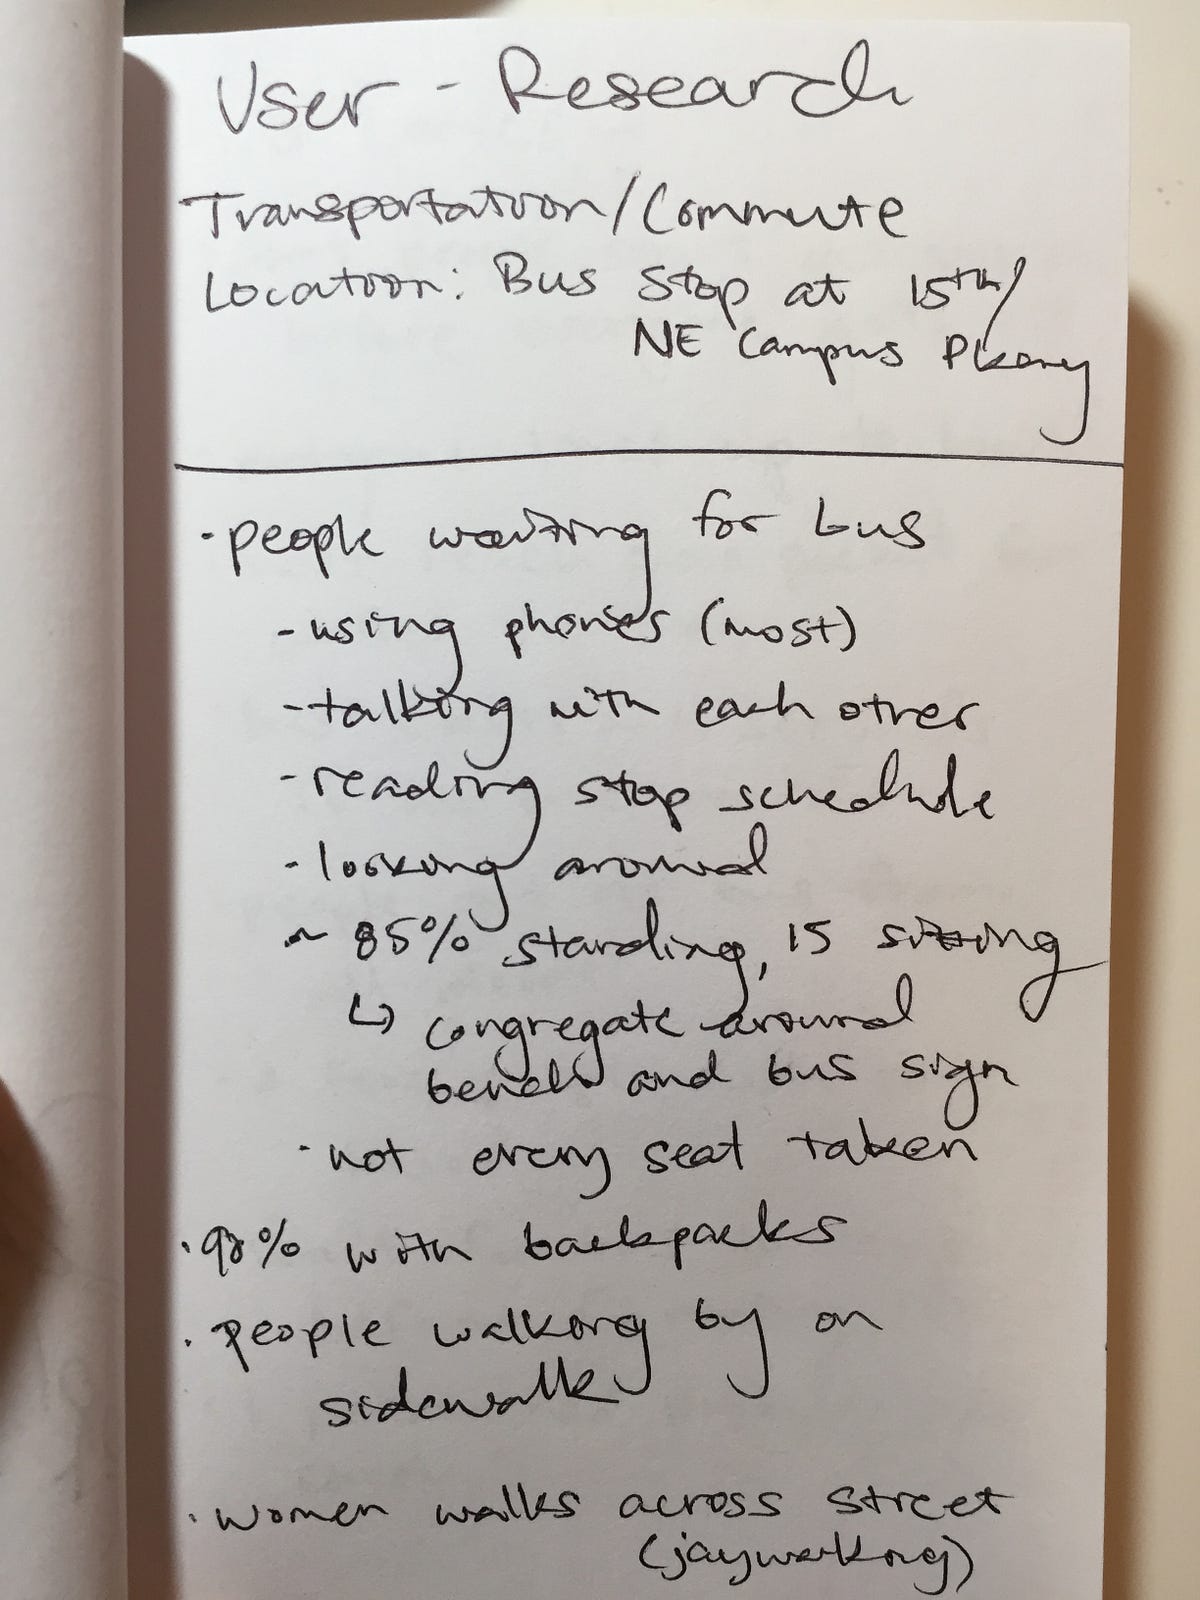 User - Research
Transportation/Commute
Location: Bus Stop at 15th/
NE Campus Pkwy
· people waiting for bus
- using phones (most)
- talking with each other
- reading stop schedule
- looking around
~ 85% standing, 15 sitting
↳ congregate around
bench and bus sign
· not every seat taken
· with backpacks
· people walking by on
sidewalk
· women walks across street
(jaywalking)